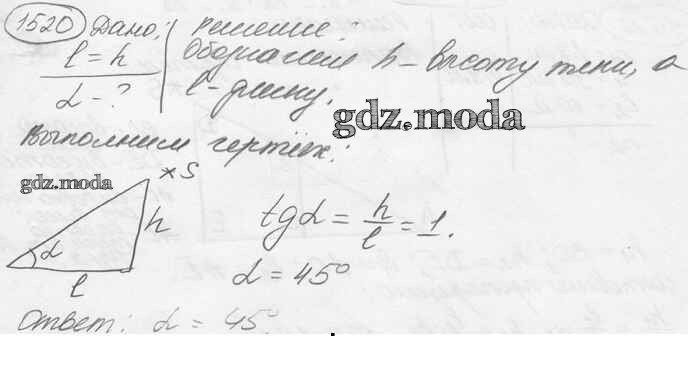 1520 Дано: Решение:
l = h Обозначим h – высоту тени, а
α - ? l – длину.
gdz.moda
Выполним чертёж:
gdz.moda
S
h
α
l
tg α = h/l = 1.
α = 45°
Ответ: α = 45°.